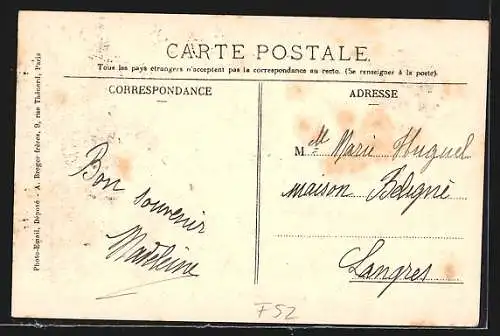 CARTE POSTALE
Tous les pays étrangers n'acceptent pas la correspondance au recto. (Se renseigner à la poste).
CORRESPONDANCE
Bon souvenir
Madeleine
ADRESSE
Mlle Marie Huguel
maison Béligné
Langres
Photo-Email, Déposé - A. Breger frères, 9, rue Thénard, Paris
F52